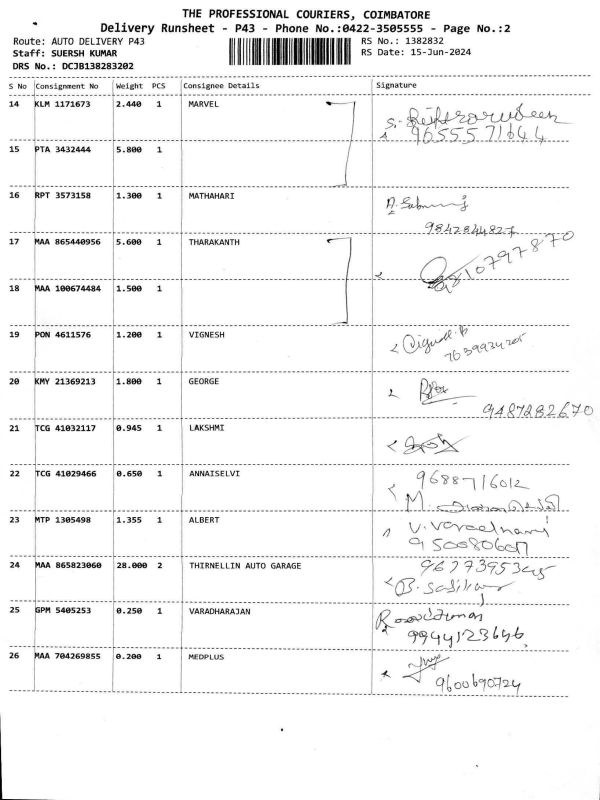 THE PROFESSIONAL COURIERS, COIMBATORE
Delivery Runsheet - P43 - Phone No.:0422-3505555 - Page No.:2
Route: AUTO DELIVERY P43 RS No.: 1382832
Staff: SUERSH KUMAR RS Date: 15-Jun-2024
DRS No.: DCJB138283202
S No Consignment No Weight PCS Consignee Details Signature
14 KLM 1171673 2.440 1 MARVEL
9655571644
15 PTA 3432444 5.800 1
16 RPT 3573158 1.300 1 MATHAHARI
9842844827
17 MAA 865440956 5.600 1 THARAKANTH
9810797870
18 MAA 100674484 1.500 1
19 PON 4611576 1.200 1 VIGNESH
20 KMY 21369213 1.800 1 GEORGE
9487282670
21 TCG 41032117 0.945 1 LAKSHMI
22 TCG 41029466 0.650 1 ANNAISELVI
9688716012
M.
23 MTP 1305498 1.355 1 ALBERT
24 MAA 865823060 28.000 2 THIRNELLIN AUTO GARAGE
25 GPM 5405253 0.250 1 VARADHARAJAN
9944123646
26 MAA 704269855 0.200 1 MEDPLUS
9600690724